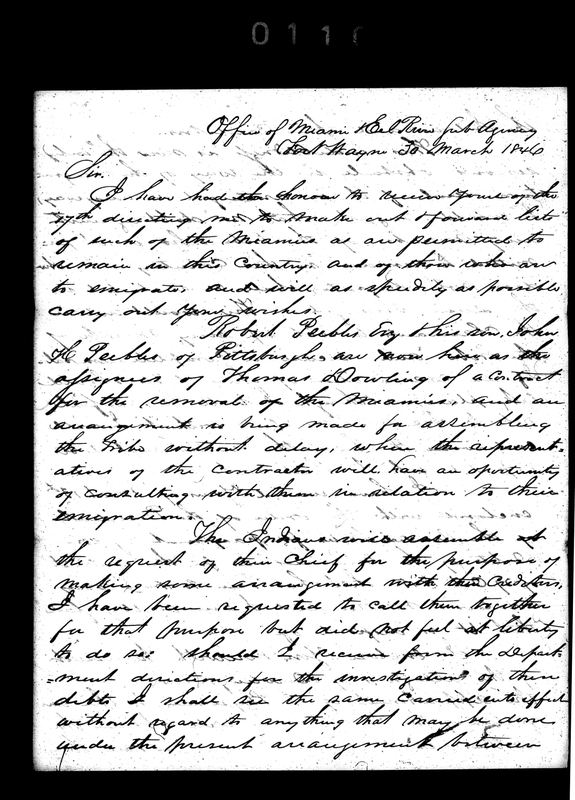 011
Office of Miami & Eel River sub Agency
Fort Wayne 30 March 1846
Sir.
I have had the honour to receive Yours of the
17th directing me to make out & forward lists
of such of the Miamies as are permitted to
remain in this Country, and of those who are
to emigrate, and will as speedily as possible
carry out your wishes
Robert Peebles Esq & his son, John
H Peebles of Pittsburgh, are now here as the
assignees of Thomas Dowling of a contract
for the removal of the Miamies, and an
arrangement is being made for assembling
the tribe without delay, when the represent-
atives of the contractor will have an oportunity
of consulting with them in relation to their
emigration.
The Indians will assemble at
the request of their Chief for the purpose of
making some arrangement with their Creditors,
I have been requested to call them together
for that purpose but did not feel at liberty
to do so: should I receive form the Depart-
=ment directions for the investigation of their
debts I shall see the same carried into effect
without regard to anything that may be done
under the present arrangement between